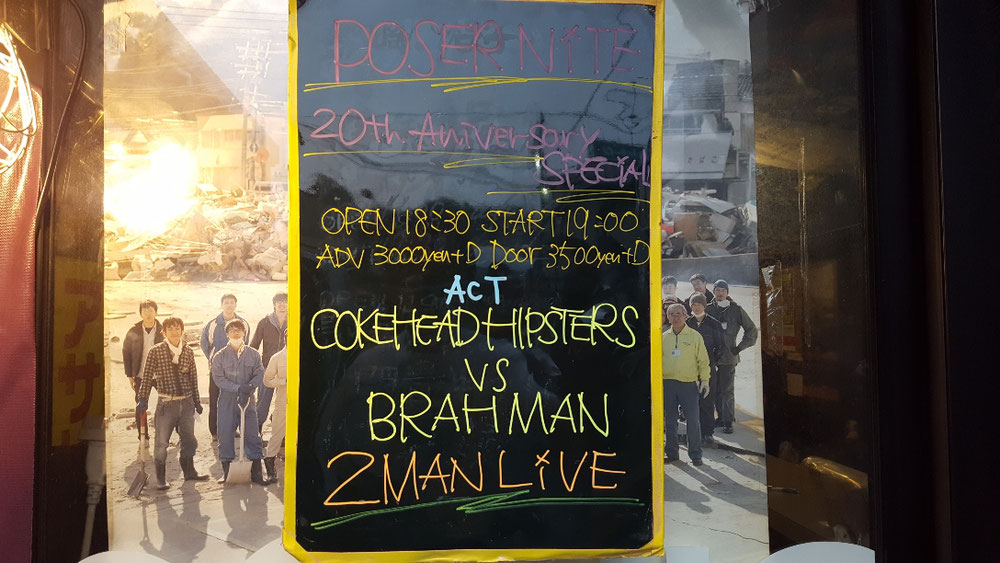 POSER NiTE
20th Aniversary
SPECiAL
OPEN 18:30 START 19:00
ADV 3000yen+D Door 3500yen+D
ACT
COKEHEAD HIPSTERS
VS
BRAHMAN
2MAN LiVE
アサ